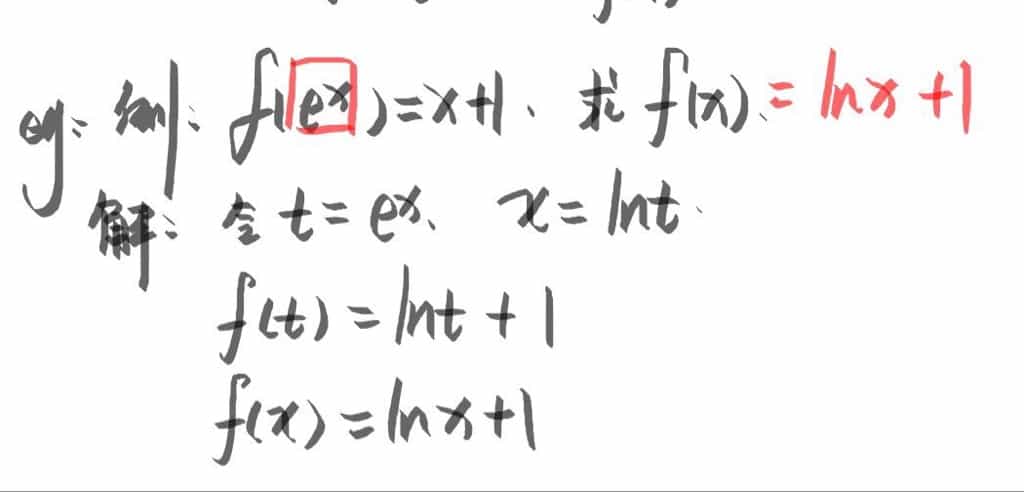 eg: 例: f(eˣ)=x+1. 求f(x).=lnx+1
解: 令t=eˣ. x=lnt.
f(t)=lnt+1
f(x)=lnx+1